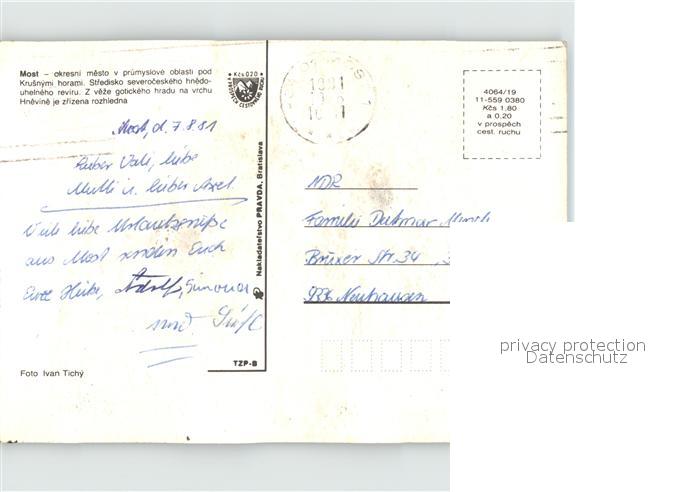 Most – okresní město v průmyslové oblasti pod
Krušnými horami. Středisko severočeského hnědo-
uhelného revíru. Z věže gotického hradu na vrchu
Hněvíně je zřízena rozhledna
Kčs 0,20
Most, d. 7.8.81
Lieber Vati, liebe
Mutti u. lieber Axel.
Viele liebe Urlaubsgrüße
aus Most senden Euch
Eure Heike, Adolf, Simona
und
Foto Ivan Tichý
TZP-B
Nakladateľstvo PRAVDA, Bratislava
1981
4064/19
11-559 0380
Kčs 1,80
a 0,20
v prospěch
cest. ruchu
NDR
Familie Dietmar
Brüxer Str. 34
9336 Neuhausen
privacy protection
Datenschutz